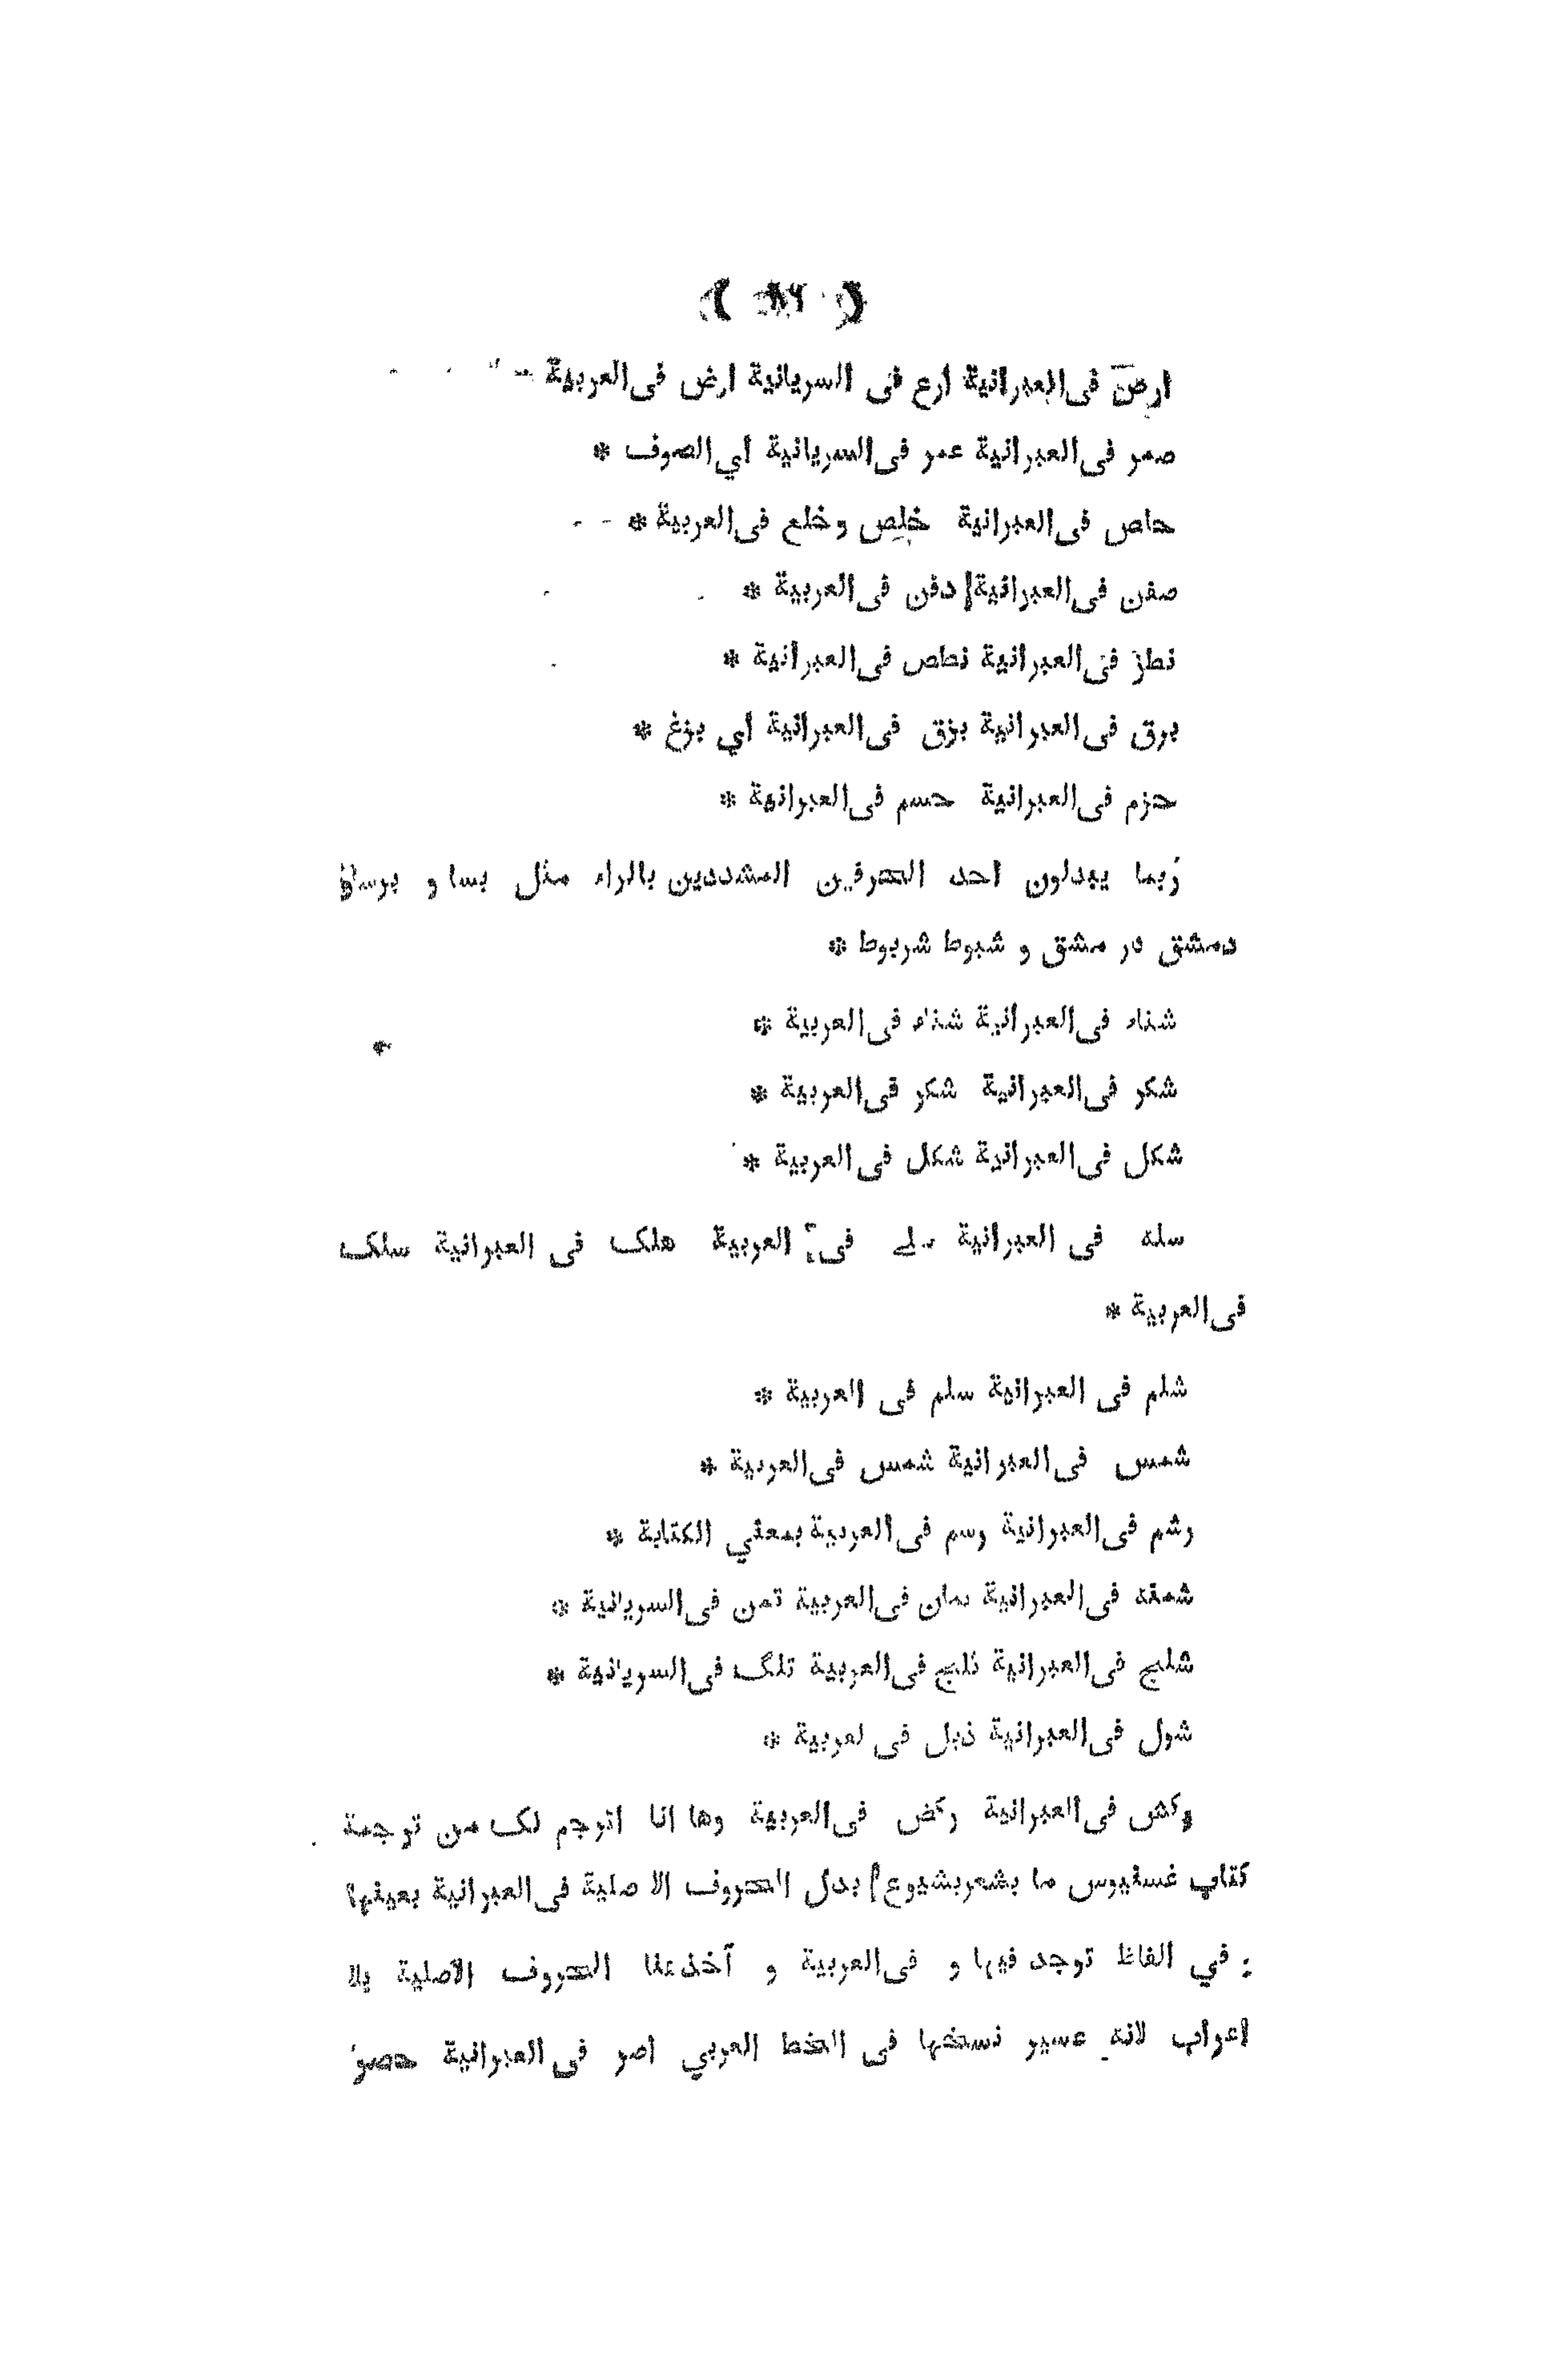 ( ٨٦ )
ارص فى العبرانية ارع فى السريانية ارض فى العربية
صمر فى العبرانية عمر فى السريانية اي الصوف *
حلص فى العبرانية خلص و خلع فى العربية *
صفن فى العبرانية دفن فى العربية *
نطز فى العبرانية نطص فى العبرانية *
برق فى العبرانية بزق فى العبرانية اي بزغ *
حزم فى العبرانية حسم فى العبرانية *
ربما يبدلون احد الحرفين المشددين بالراء مثل بسا و برسا و
دمشق در مشق و شبوط شربوط *
شناء فى العبرانية شناء فى العربية *
شكر فى العبرانية شكر فى العربية *
شكل فى العبرانية شكل فى العربية *
سله فى العبرانية فى العربية هلك فى العبرانية سلك
فى العربية *
شلم فى العبرانية سلم فى العربية *
شمس فى العبرانية شمس فى العربية *
رشم فى العبرانية رسم فى العربية بمعني الكتابة *
شمنه فى العبرانية ثمان فى العربية تمن فى السريانية *
شلج فى العبرانية ثلج فى العربية تلگ فى السريانية *
شول فى العبرانية ذبل فى لعربية *
ركش فى العبرانية ركض فى العربية وها انا اترجم لك من ترجمة
كتاب غسنيوس ما يشعر بشيوع بدل الحروف الا صلية فى العبرانية بعينها
في الفاظ توجد فيها و فى العربية و آخذ الحروف الاصلية بلا
اعراب لانه عسير نسخها فى الخط العربي اصر فى العبرانية حصر